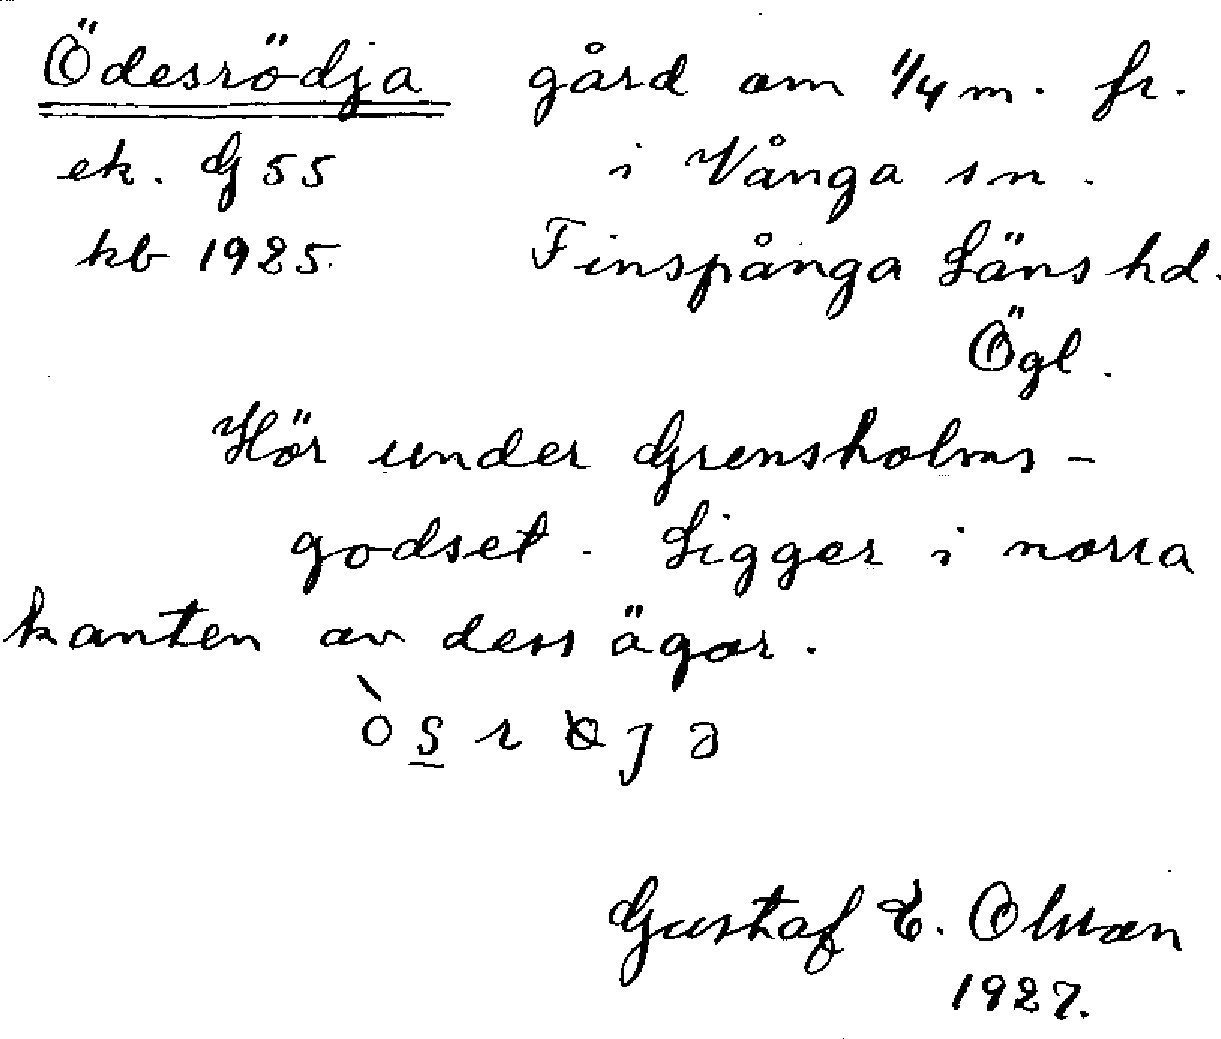 Ödesrödja gård om 1/4 m. fr.
ek. G 55 i Vånga sn.
kb 1925. Finspånga Läns hd.
Ögl.
Hör under Grensholms-
godset. Ligger i norra
kanten av dess ägor.
Gustaf E. Olsson
1927.